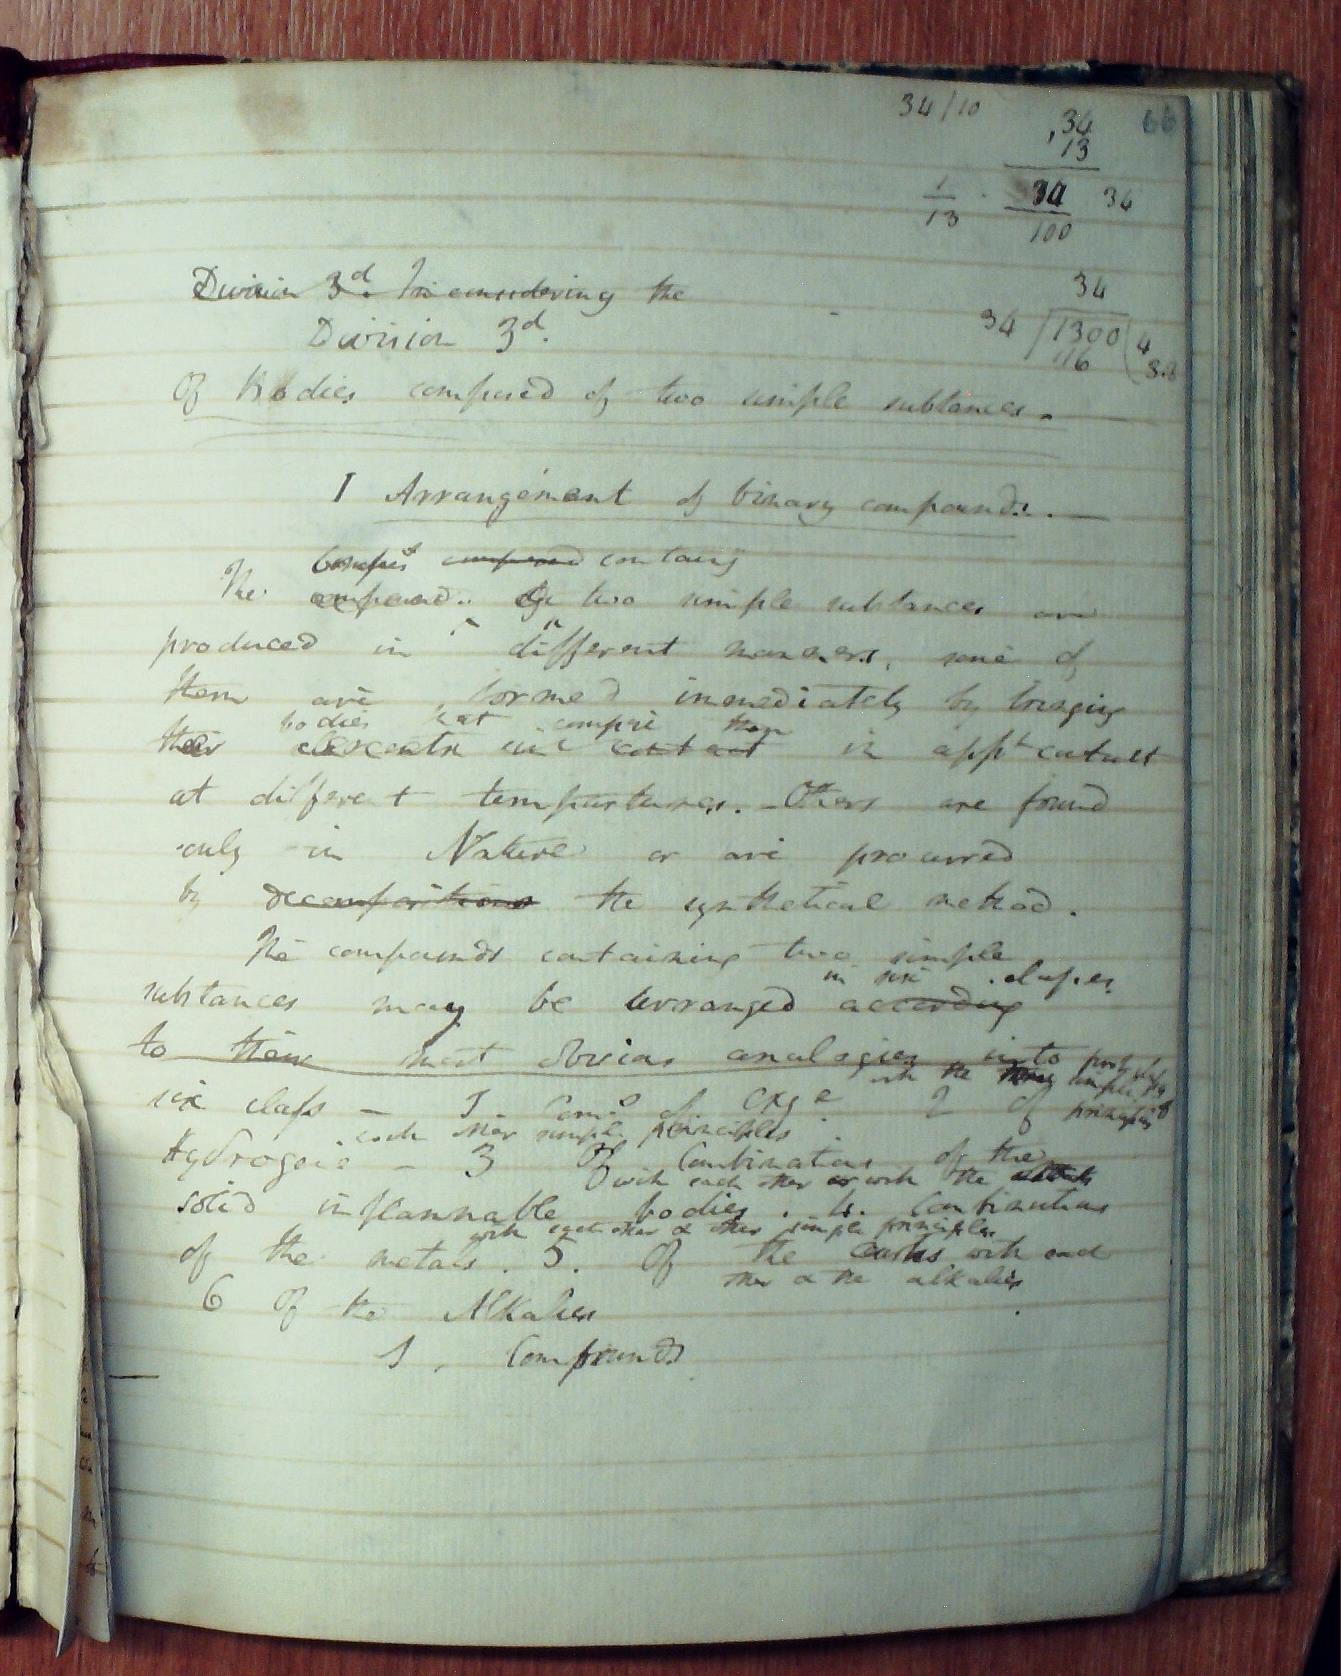 34/10
,34
13
66
1/13 · 34 34
100
Division 3d. In considering the
34
34 1300 4
Division 3d.
Of Bodies composed of two simple substances.
I Arrangement of binary compounds.
compound containg
The compounds Of two simple substances are
produced in different manners, some of
them are formed immediately by bringing
bodies that compose them
their elements into contact in appt contact
at different tempertures. - Others are found
only in Nature or are procured
by decompositions the synthetical method.
The compounds containing two simple
in six classes.
substances may be arranged according
to their most obvious analogies into
with the simple
six class - I. Comds of Oxge 2 Of principles
each other simple principles
Hydrogene - 3 Of Combinations of the
with each other or with the
solid inflammable bodies. 4. Combinations
with each other & other simple principles
of the metals. 5. Of the Earths with each
other & the alkalies
6 Of the Alkalies
1. Compounds